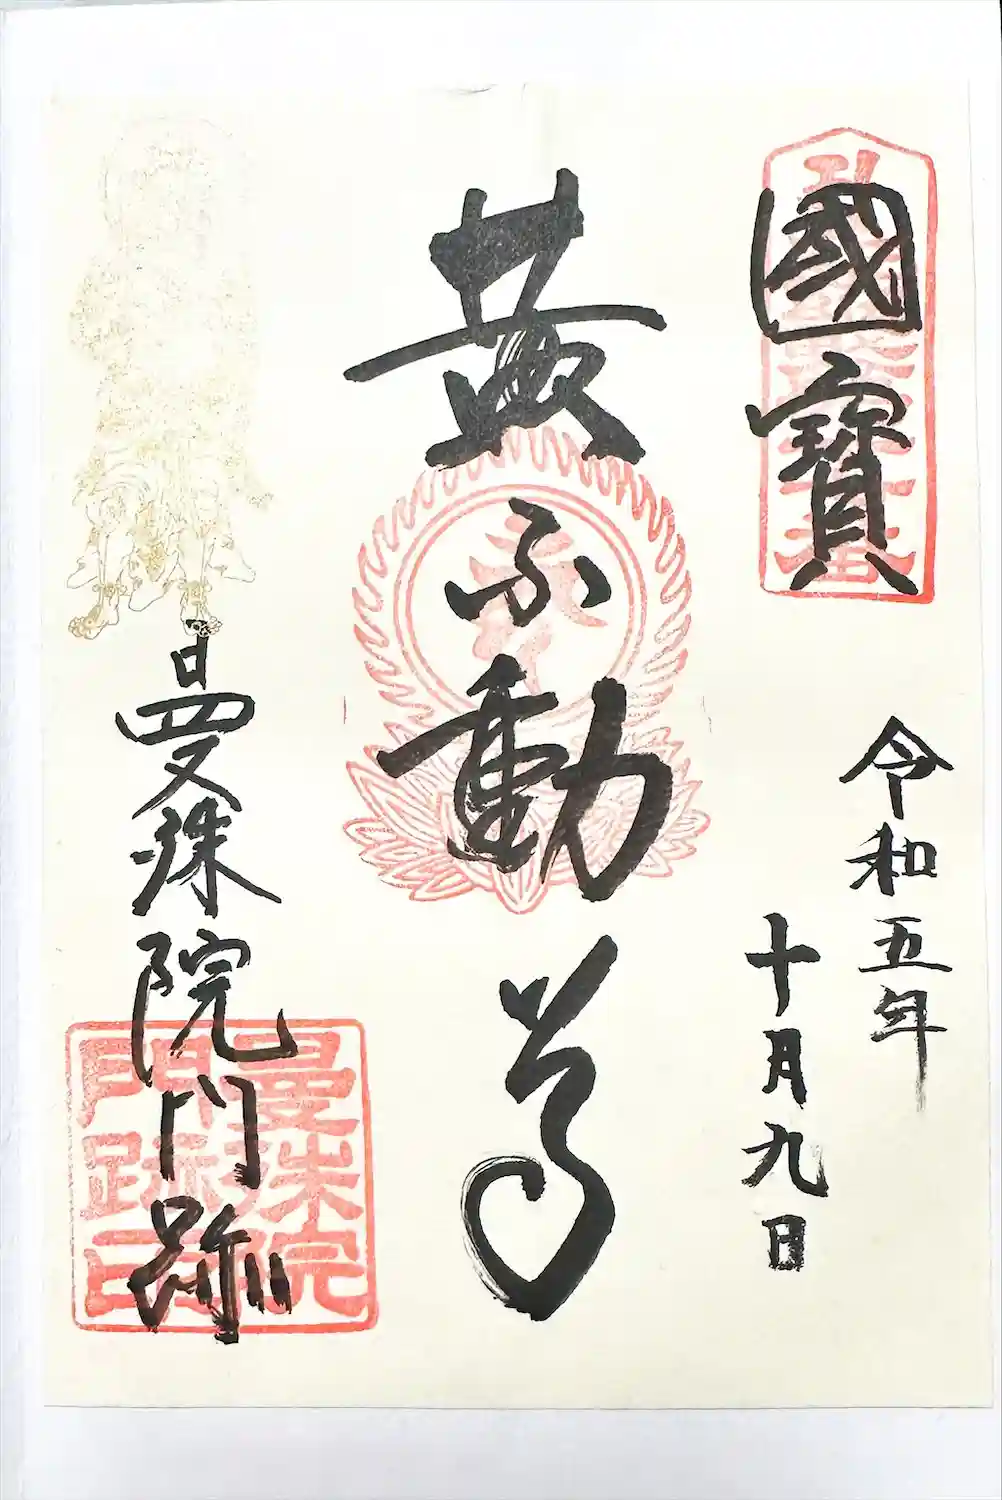 國寶
令和五年
十月九日
黄不動尊
曼殊院門跡
曼殊院
門跡印